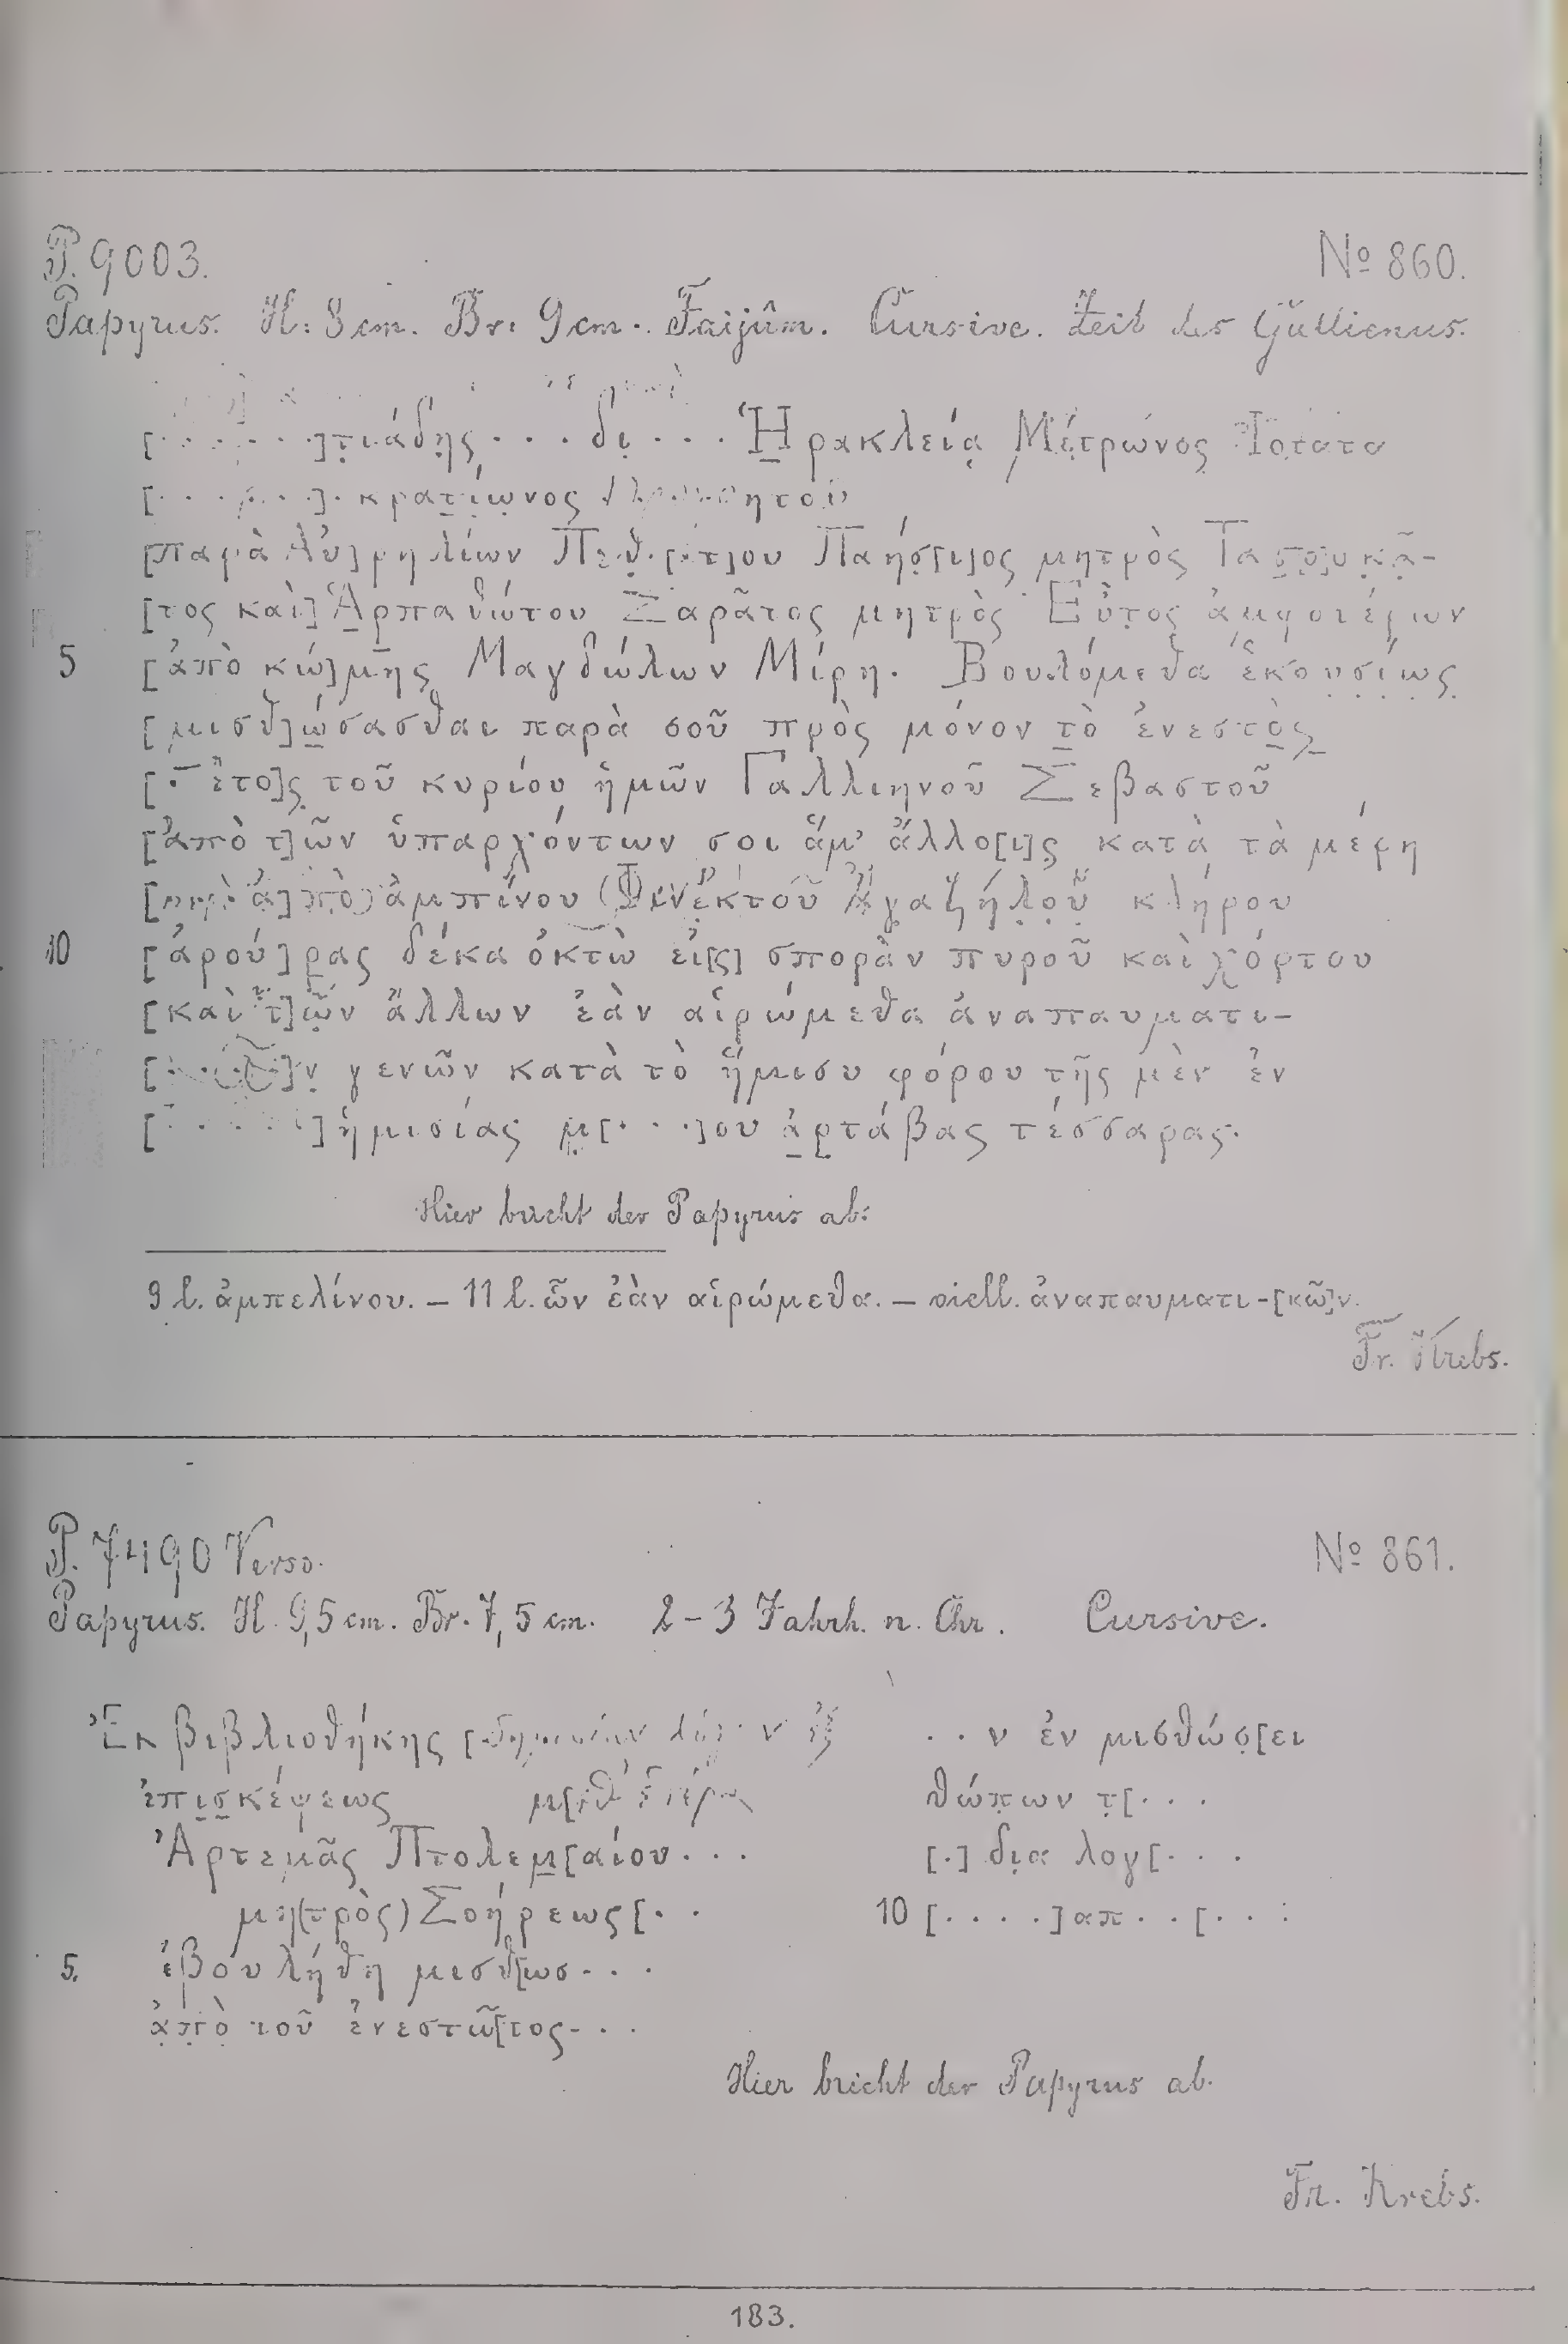 P. 9003. No 860.
Papyrus. H: 8 cm. Br: 9 cm. Faijûm. Cursive. Zeit des Gallienus.
[· · · · · ·]τιάδης · · · δι · · · Ἡρακλείᾳ
[· · · · ·]· κρατίωνος
[παρὰ Αὐ]ρηλίων Παήσ[ι]ος μητρὸς Τασουκᾶ-
[τος καὶ] Ἁρπαθώτου Σαρᾶτος μητρὸς Εὖτος ἀμφοτέρων
5 [ἀπὸ κώ]μης Μαγδώλων Μίρη. Βουλόμεθα ἑκουσίως
[μισθ]ώσασθαι παρὰ σοῦ πρὸς μόνον τὸ ἐνεστὸς
[· ἔτο]ς τοῦ κυρίου ἡμῶν Γαλλιηνοῦ Σεβαστοῦ
[ἀπὸ τ]ῶν ὑπαρχόντων σοι ἅμ' ἄλλο[ι]ς κατὰ τὰ μέρη
ἀμπίνου κλήρου
10 [ἀρού]ρας δέκα ὀκτὼ εἰ[ς] σπορὰν πυροῦ καὶ χόρτου
[καὶ τ]ῶν ἄλλων ἐὰν αἱρώμεθα ἀναπαυματι-
[· · ·]ν γενῶν κατὰ τὸ ἥμισυ φόρου τῆς μὲν ἐν
[· · · · · ·] ἡμισίας μ[· · ·]ου ἀρτάβας τέσσαρας.
Hier bricht der Papyrus ab.
9 l. ἀμπελίνου. — 11 l. ὧν ἐὰν αἱρώμεθα. — viell. ἀναπαυματι-[κῶ]ν.
Fr. Krebs.
P. 7490 Verso. No 861.
Papyrus. H. 9,5 cm. Br. 7,5 cm. 2-3 Jahrh. n. Chr. Cursive.
Ἐκ βιβλιοθήκης
ἐπισκέψεως
Ἀρτεμᾶς Πτολεμ[αίου · · ·
μη(τρὸς) Σοήρεως [· ·
5. ἐβουλήθη μισθ[ωσ · · ·
ἀπὸ τοῦ ἐνεστῶ[τος · · ·
· · ν ἐν μισθώσ[ει
θώπων τ[· · ·
[·] δια λογ[· · ·
10 [· · · ·]απ · · [· · ·
Hier bricht der Papyrus ab.
Fr. Krebs.
183.